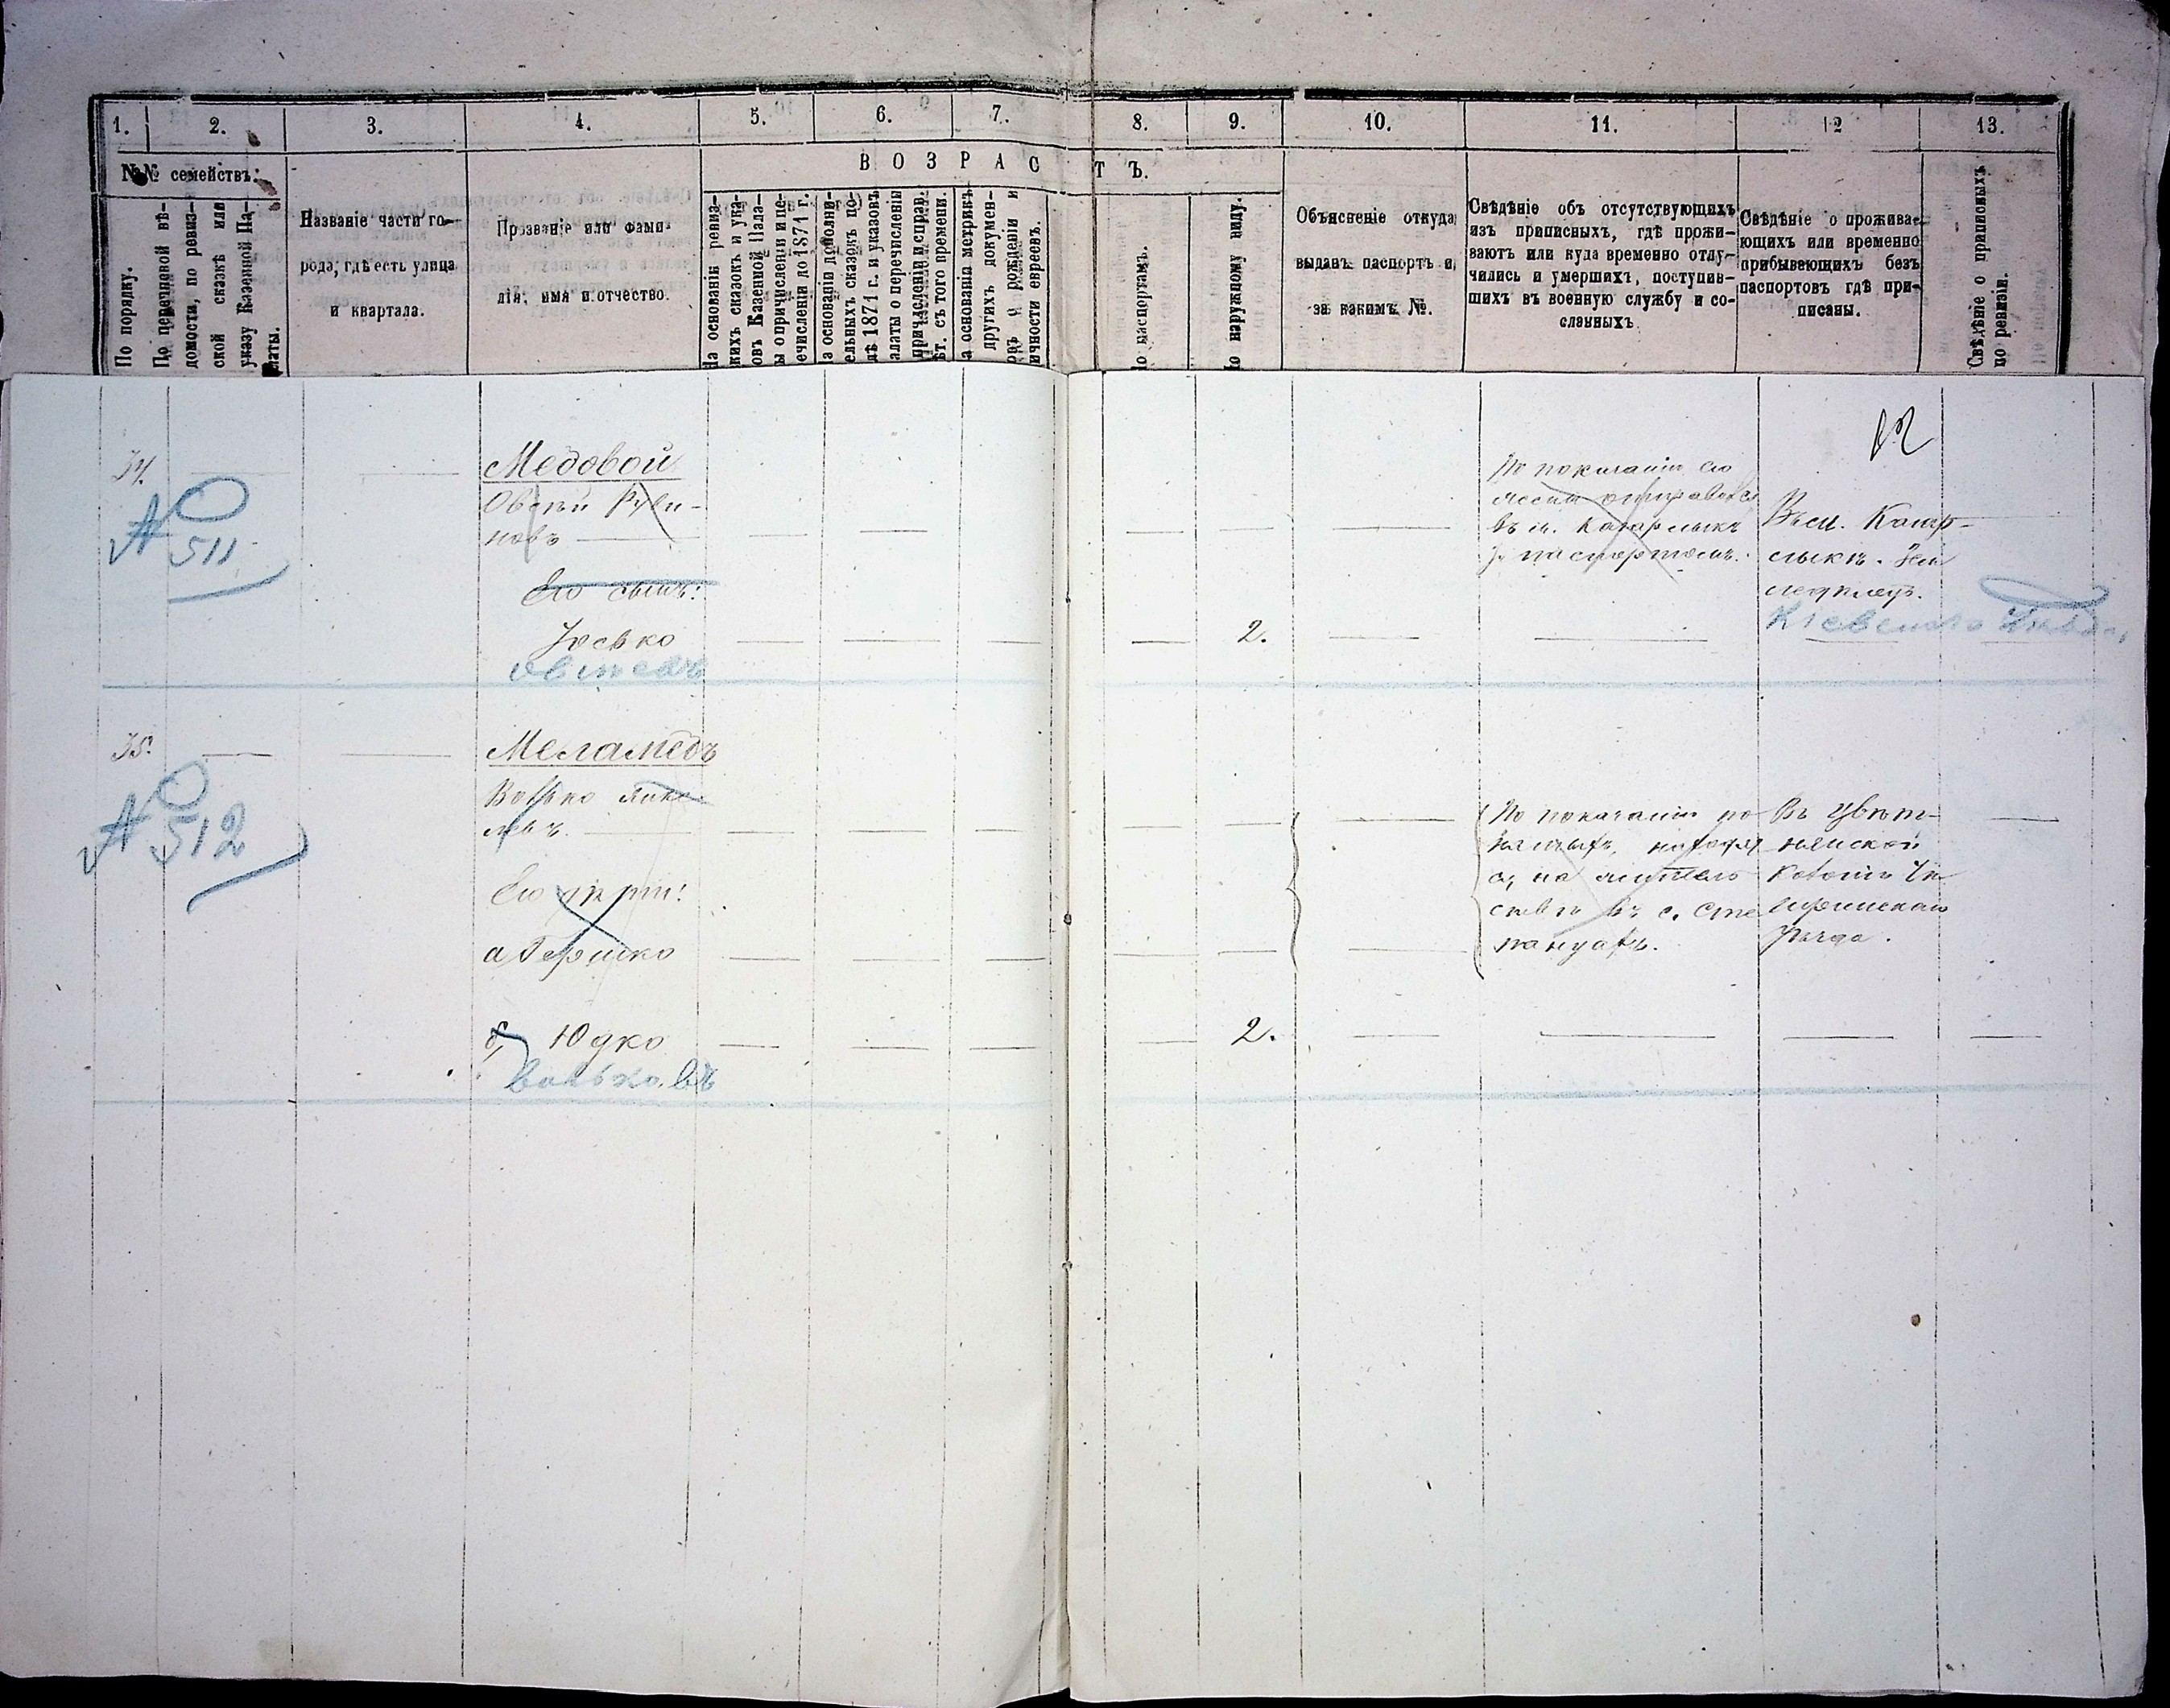 1. 2. 3. 4. 5. 6. 7. 8. 9. 10. 11. 12 13.
№№ семействъ:
По порядку.
По перечневой вѣ-
домости, по ревиз-
ской сказкѣ или
указу Казенной Па-
латы.
Названіе части го-
рода, гдѣ есть улица
и квартала.
Прозваніе или фами-
лія, имя и отчество.
ВОЗРАСТЪ.
На основаніи ревиз-
скихъ сказокъ и ука-
зовъ Казенной Пала-
ты о причисленіи и пе-
речисленіи до 1871 г.
а основаніи дополни-
тельныхъ сказокъ по-
слѣ 1871 г. и указовъ
палаты о перечисленіи
причисленіи и справ.
ѣт. съ того времени.
а основаніи метрикъ
другихъ докумен-
овъ о рожденіи и
ичности евреевъ.
По паспортамъ.
По наружному виду.
Объясненіе откуда
выданъ паспортъ и
за какимъ №.
Свѣдѣніе объ отсутствующихъ
изъ приписныхъ, гдѣ прожи-
ваютъ или куда временно отлу-
чились и умершихъ, поступив-
шихъ въ военную службу и со-
сланныхъ
Свѣдѣніе о прожива-
ющихъ или временно
прибывающихъ безъ
паспортовъ гдѣ при-
писаны.
Свѣдѣніе о приписныхъ
по ревизіи.
Медовой
Овсѣй Руви-
новъ
№ 511
Его сынъ:
Юсько 2.
Овсѣевъ
По показанію его
въ м. Кагарлыкъ
паспортомъ.
Въ м. Кагар-
лыкѣ. Зем
Кіевскаго уѣзда
35.
Меламедъ
Волько Янке-
левъ.
№ 512
Его дѣти:
а, Гершко
б, Юдко 2.
вольковъ
По показанію по
нятыхъ, находят
ся на житель
ствѣ въ с. Сте
пануахъ.
Въ Цвѣт-
нянской
Волости Чи
гиринскаго
уѣзда.